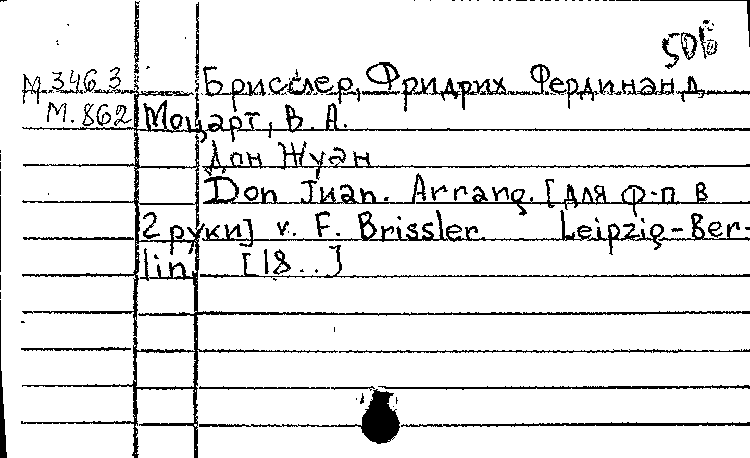 50Б
М 3463 Брисслер, Фридрих Фердинанд,
М. 862 Моцарт, В. А.
Дон Жуан
Don Juan. Arrang. [для ф-п в
2 руки] v. F. Brissler. Leipzig-Ber-
lin, [18..]